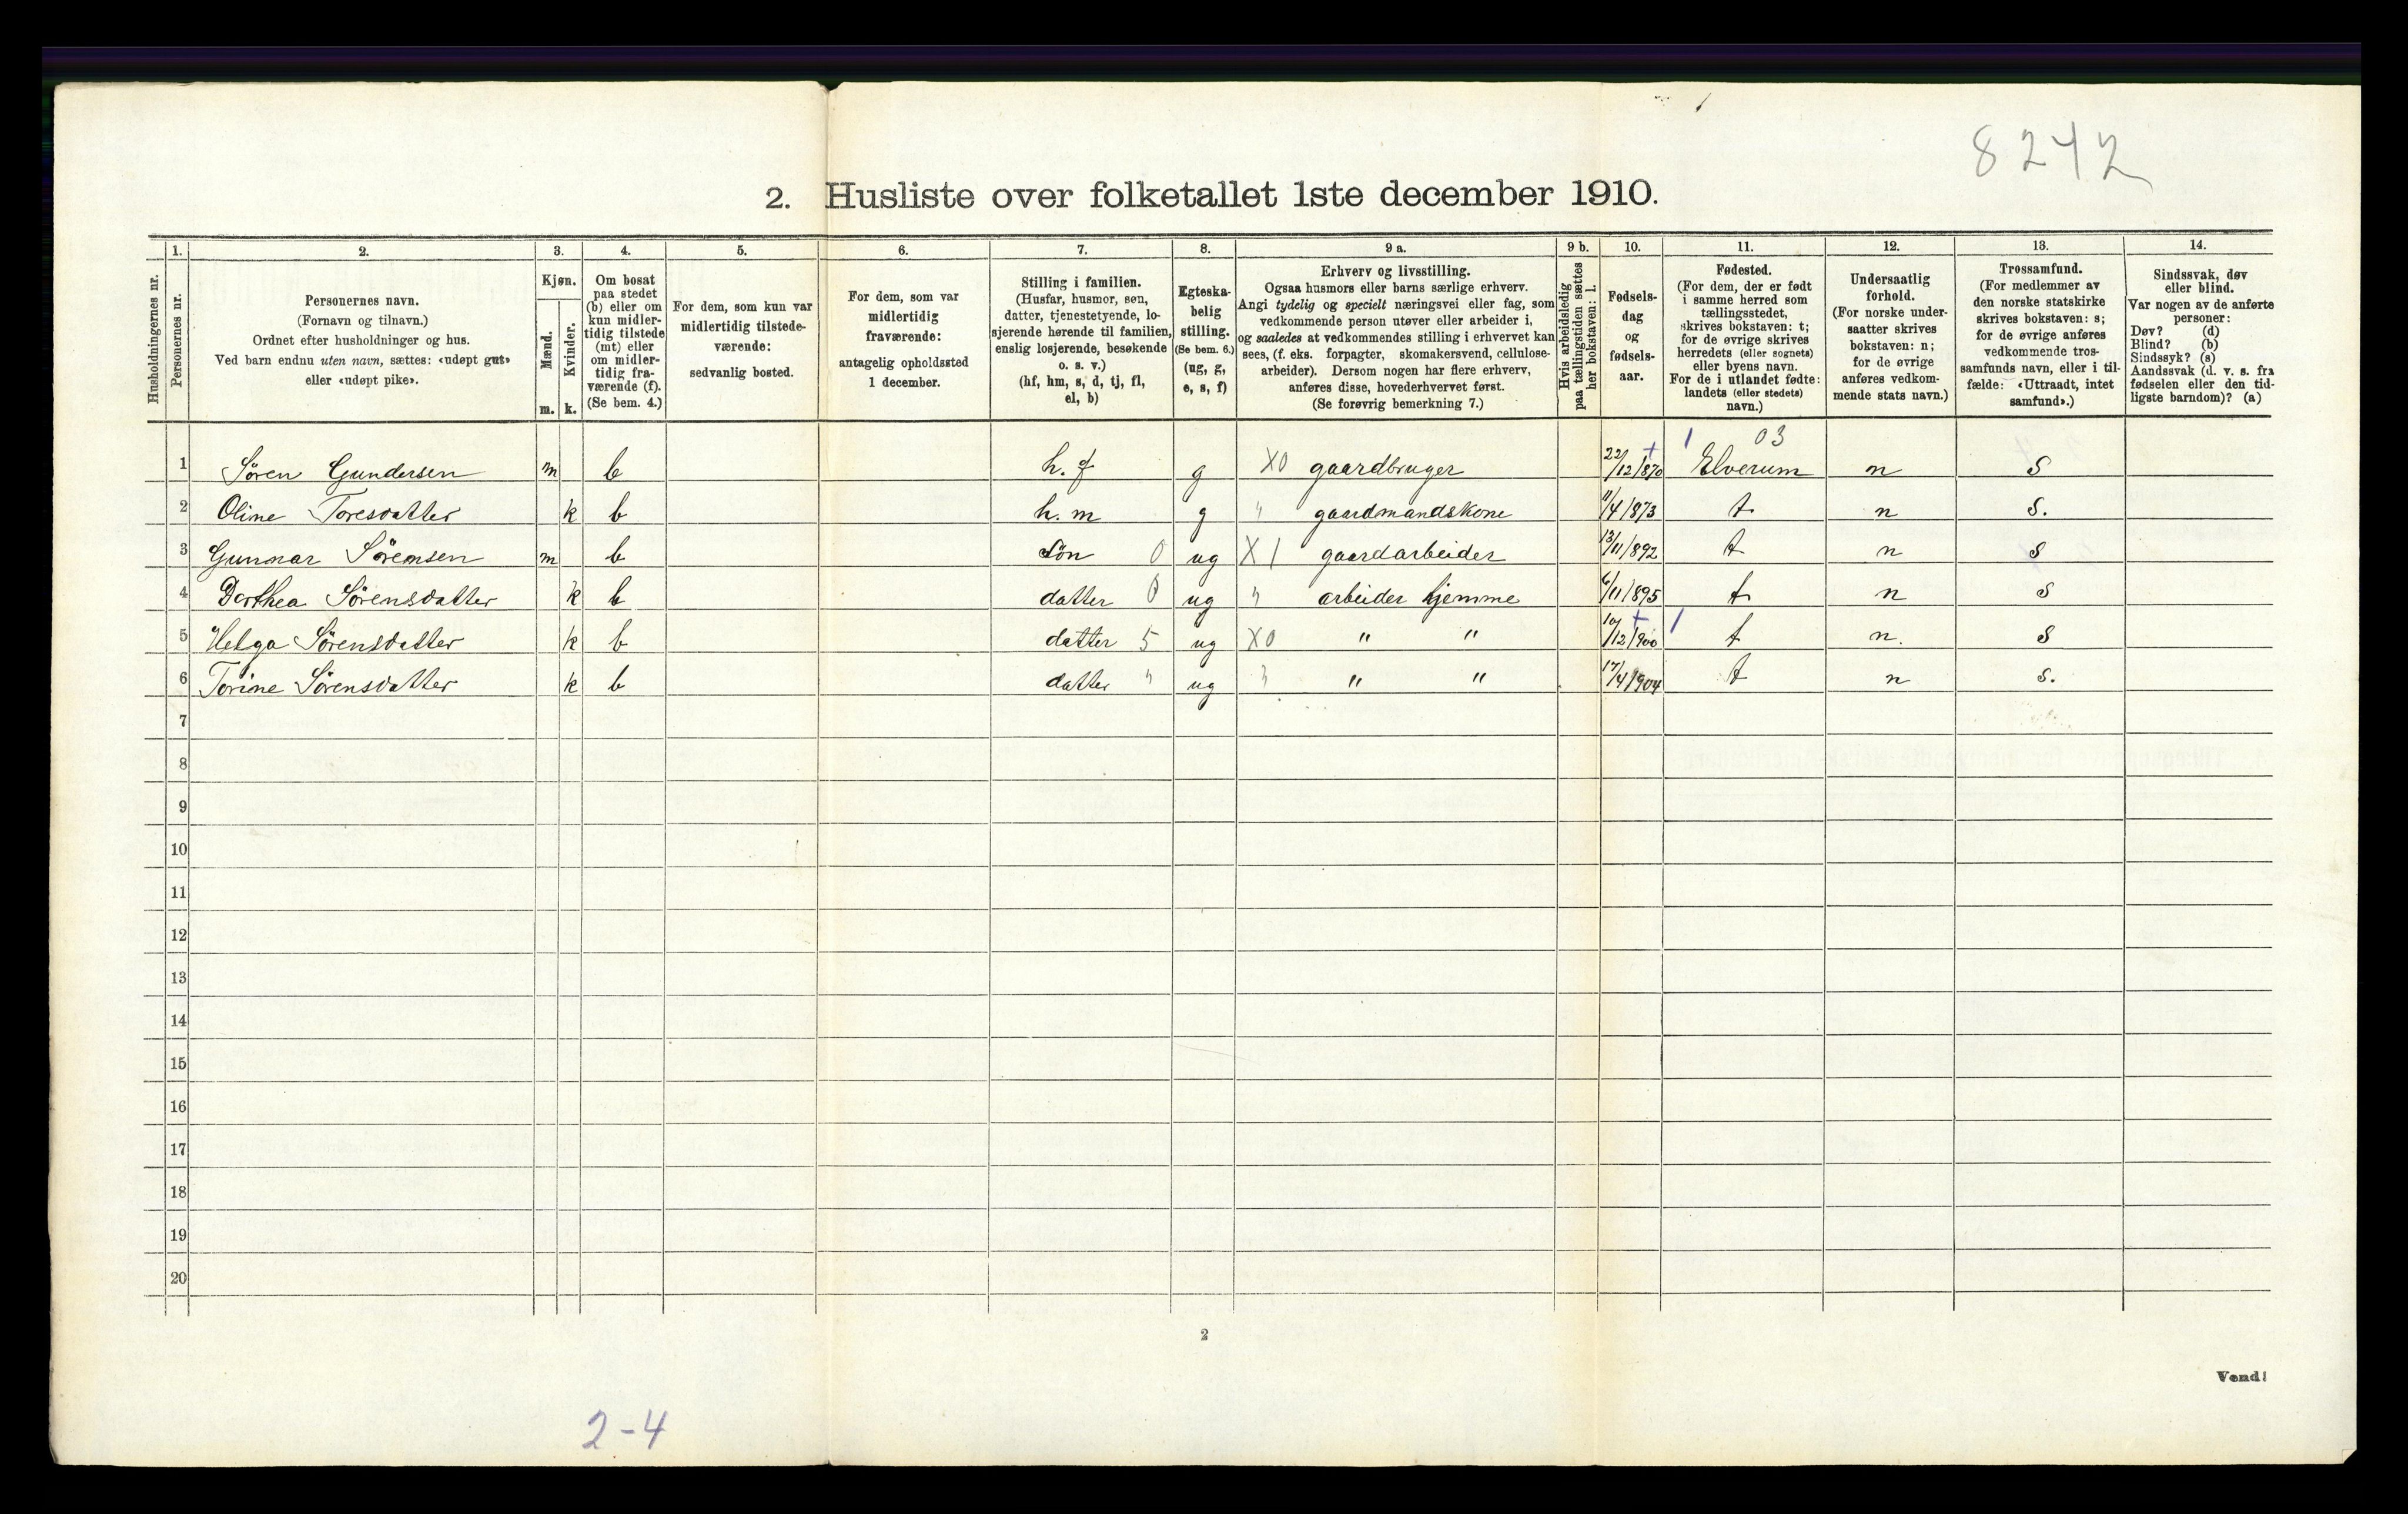 8242
2. Husliste over folketallet 1ste december 1910.
Husholdningernes nr.
1. Personernes nr.
2. Personernes navn.
(Fornavn og tilnavn.)
Ordnet efter husholdninger og hus.
Ved barn endnu uten navn, sættes: «udøpt gut»
eller «udøpt pike».
3. Kjøn.
Mænd. m.
Kvinder. k.
4. Om bosat
paa stedet
(b) eller om
kun midler-
tidig tilstede
(mt) eller
om midler-
tidig fra-
værende (f).
(Se bem. 4.)
5. For dem, som kun var
midlertidig tilstede-
værende:
sedvanlig bosted.
6. For dem, som var
midlertidig
fraværende:
antagelig opholdssted
1 december.
7. Stilling i familien.
(Husfar, husmor, søn,
datter, tjenestetyende, lo-
sjerende hørende til familien,
enslig losjerende, besøkende
o. s. v.)
(hf, hm, s, d, tj, fl,
el, b)
8. Egteska-
belig
stilling.
(Se bem. 6.)
(ug, g,
e, s, f)
9 a. Erhverv og livsstilling.
Ogsaa husmors eller barns særlige erhverv.
Angi tydelig og specielt næringsvei eller fag, som
vedkommende person utøver eller arbeider i,
og saaledes at vedkommendes stilling i erhvervet kan
sees, (f. eks. forpagter, skomakersvend, cellulose-
arbeider). Dersom nogen har flere erhverv,
anføres disse, hovederhvervet først.
(Se forøvrig bemerkning 7.)
9 b. Hvis arbeidsledig
paa tællingstiden sættes
her bokstaven: l.
10. Fødsels-
dag
og
fødsels-
aar.
11. Fødested.
(For dem, der er født
i samme herred som
tællingsstedet,
skrives bokstaven: t;
for de øvrige skrives
herredets (eller sognets)
eller byens navn.
For de i utlandet fødte:
landets (eller stedets)
navn.)
12. Undersaatlig
forhold.
(For norske under-
saatter skrives
bokstaven: n;
for de øvrige
anføres vedkom-
mende stats navn.)
13. Trossamfund.
(For medlemmer av
den norske statskirke
skrives bokstaven: s;
for de øvrige anføres
vedkommende tros-
samfunds navn, eller i til-
fælde: «Uttraadt, intet
samfund».)
14. Sindssvak, døv
eller blind.
Var nogen av de anførte
personer:
Døv? (d)
Blind? (b)
Sindssyk? (s)
Aandssvak (d. v. s. fra
fødselen eller den tid-
ligste barndom)? (a)
1 03
1 Sören Gundersen m b h. f g X0 gaardbruger 22/12/870 + Elverum n S
2 Oline Toresdatter k b h. m g " gaardmandskone 11/4/873 t n S.
3 Gunnar Sörensen m b Sön 0 ug X1 gaardarbeider 13/11/892 t n S
4 Dorthea Sörensdatter k b datter 0 ug " arbeider hjemme 6/11/895 t n S
5 Helga Sörensdatter k b datter 5 ug X0 " " 10/12/900 + 1 t n. S
6 Torine Sörensdatter k b datter " ug " " " 17/4/904 t n S.
7
8
9
10
11
12
13
14
15
16
17
18
19
20
2
Vend!
2-4